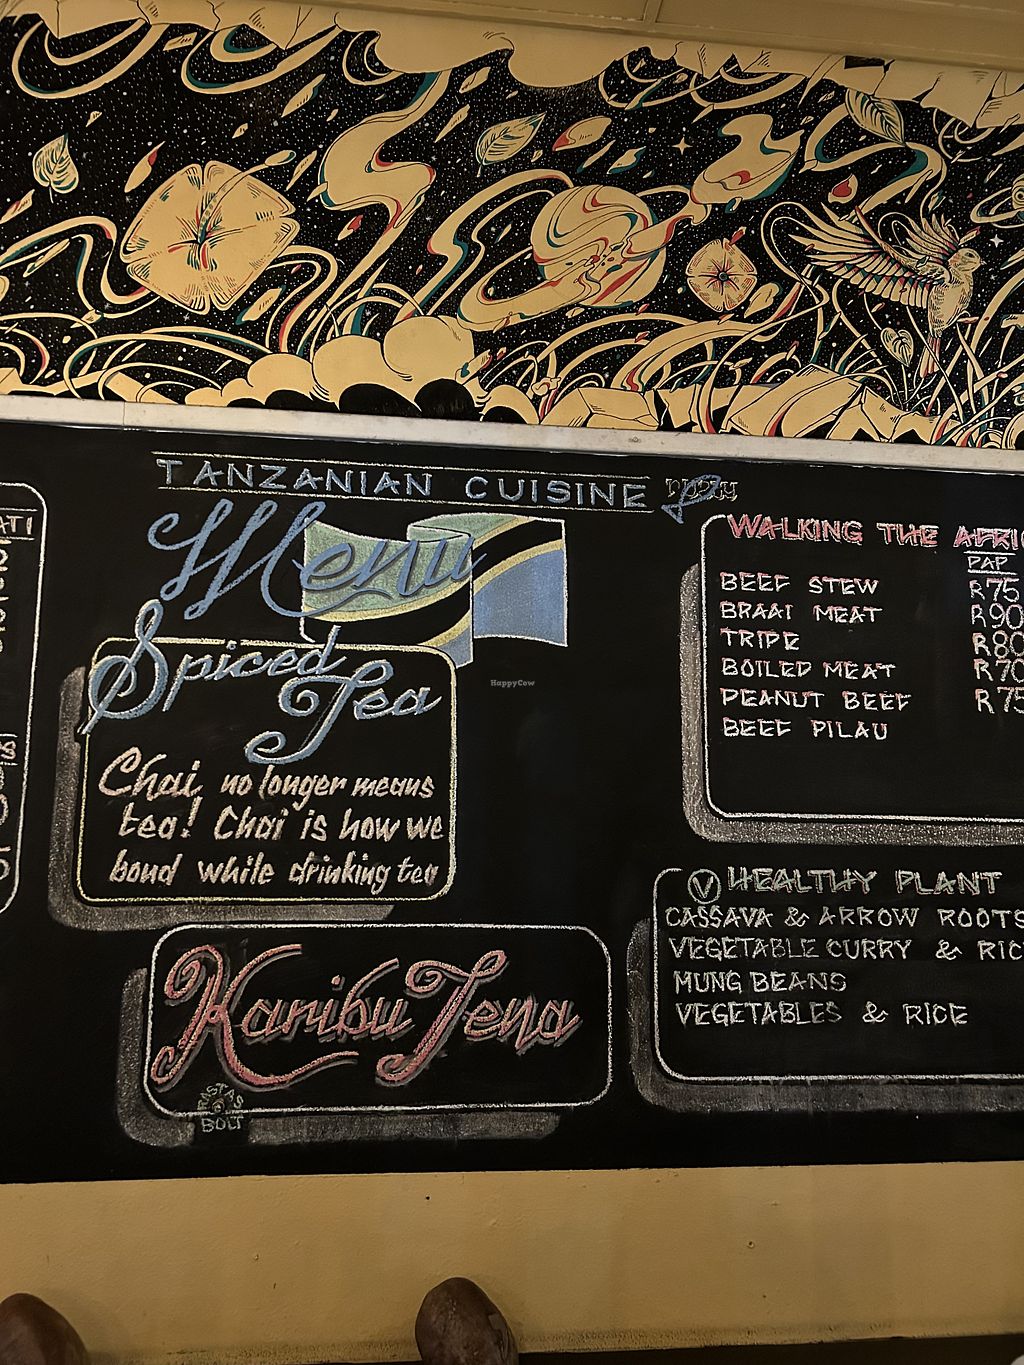 TANZANIAN CUISINE
Menu
Spiced
Tea
Chai no longer means
tea! Chai is how we
bond while drinking tea
Karibu Tena
RASTAS
BOLT
ATI
WALKING THE AFRI
PAP
BEEF STEW R75
BRAAI MEAT R90
TRIPE R80
BOILED MEAT R70
PEANUT BEEF R75
BEEF PILAU
V HEALTHY PLANT
CASSAVA & ARROW ROOTS
VEGETABLE CURRY & RIC
MUNG BEANS
VEGETABLES & RICE
HappyCow